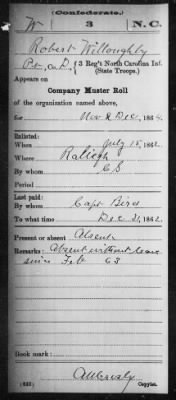 (Confederate.)
W 3 N.C.
Robert Willoughby
Pt, Co. D., 3 Reg't North Carolina Inf.
(State Troops.)
Appears on
Company Muster Roll
of the organization named above,
for Nov & Dec, 1864.
Enlisted:
When July 15, 1862
Where Raliegh
By whom C S
Period
Last paid:
By whom Capt
To what time Dec 31, 1862.
Present or absent Absent
Remarks: Absent without leave
since Feb 63
Book mark:
Copyist.